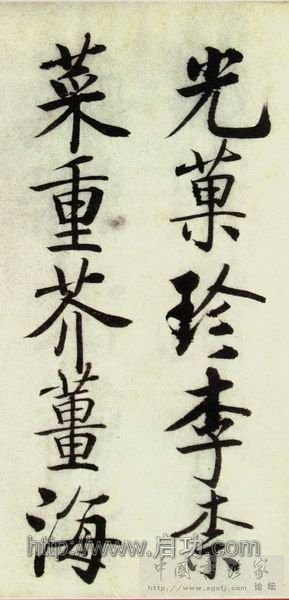 光菓珍李柰
菜重芥薑海
http://www.启功.com
中國書法家
论坛
www.zgsfj.com